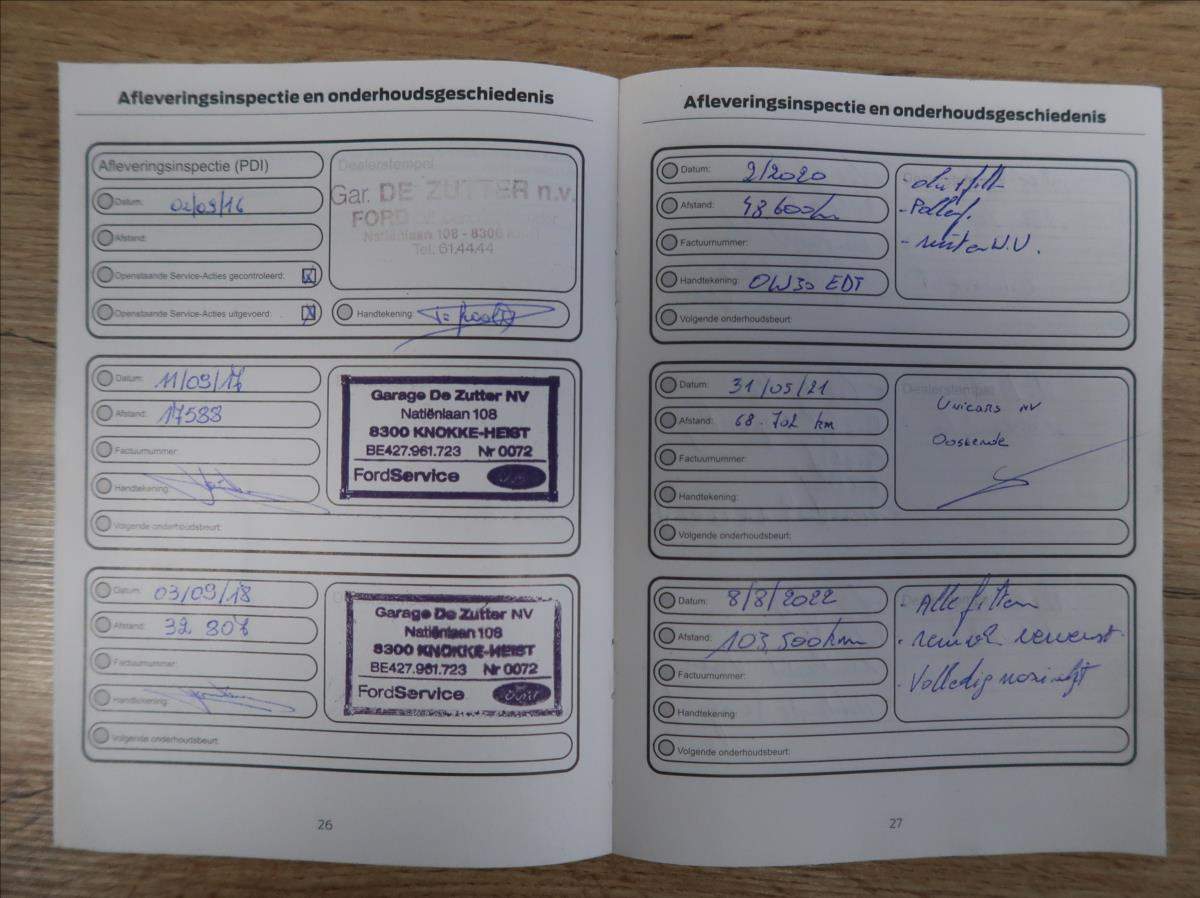 Afleveringsinspectie en onderhoudsgeschiedenis
Afleveringsinspectie (PDI)
Datum: 02/09/16
Afstand:
Openstaande Service-Acties gecontroleerd:
Openstaande Service-Acties uitgevoerd:
Dealerstempel
Gar. DE ZUTTER n.v.
FORD
Natiënlaan 108 - 8300
Tel. 61.44.44
Handtekening:
Datum: 11/09/17
Afstand: 17588
Factuurnummer:
Handtekening:
Volgende onderhoudsbeurt:
Garage De Zutter NV
Natiënlaan 108
8300 KNOKKE-HEIST
BE427.961.723 Nr 0072
FordService
Datum: 03/09/18
Afstand: 32 807
Factuurnummer:
Handtekening:
Volgende onderhoudsbeurt:
Garage De Zutter NV
Natiënlaan 108
8300 KNOKKE-HEIST
BE427.961.723 Nr 0072
FordService
26
Afleveringsinspectie en onderhoudsgeschiedenis
Datum: 2/2020
Afstand: 48 600km
Factuurnummer:
Handtekening: OW30 EDT
Volgende onderhoudsbeurt:
- Pollenf.
Datum: 31/05/21
Afstand: 68.702 km
Factuurnummer:
Handtekening:
Volgende onderhoudsbeurt:
Dealerstempel
Unicars NV
Oostende
Datum: 8/8/2022
Afstand: 103.500km
Factuurnummer:
Handtekening:
Volgende onderhoudsbeurt:
- Alle filters
- remolie ververst
- Volledig nazicht
27